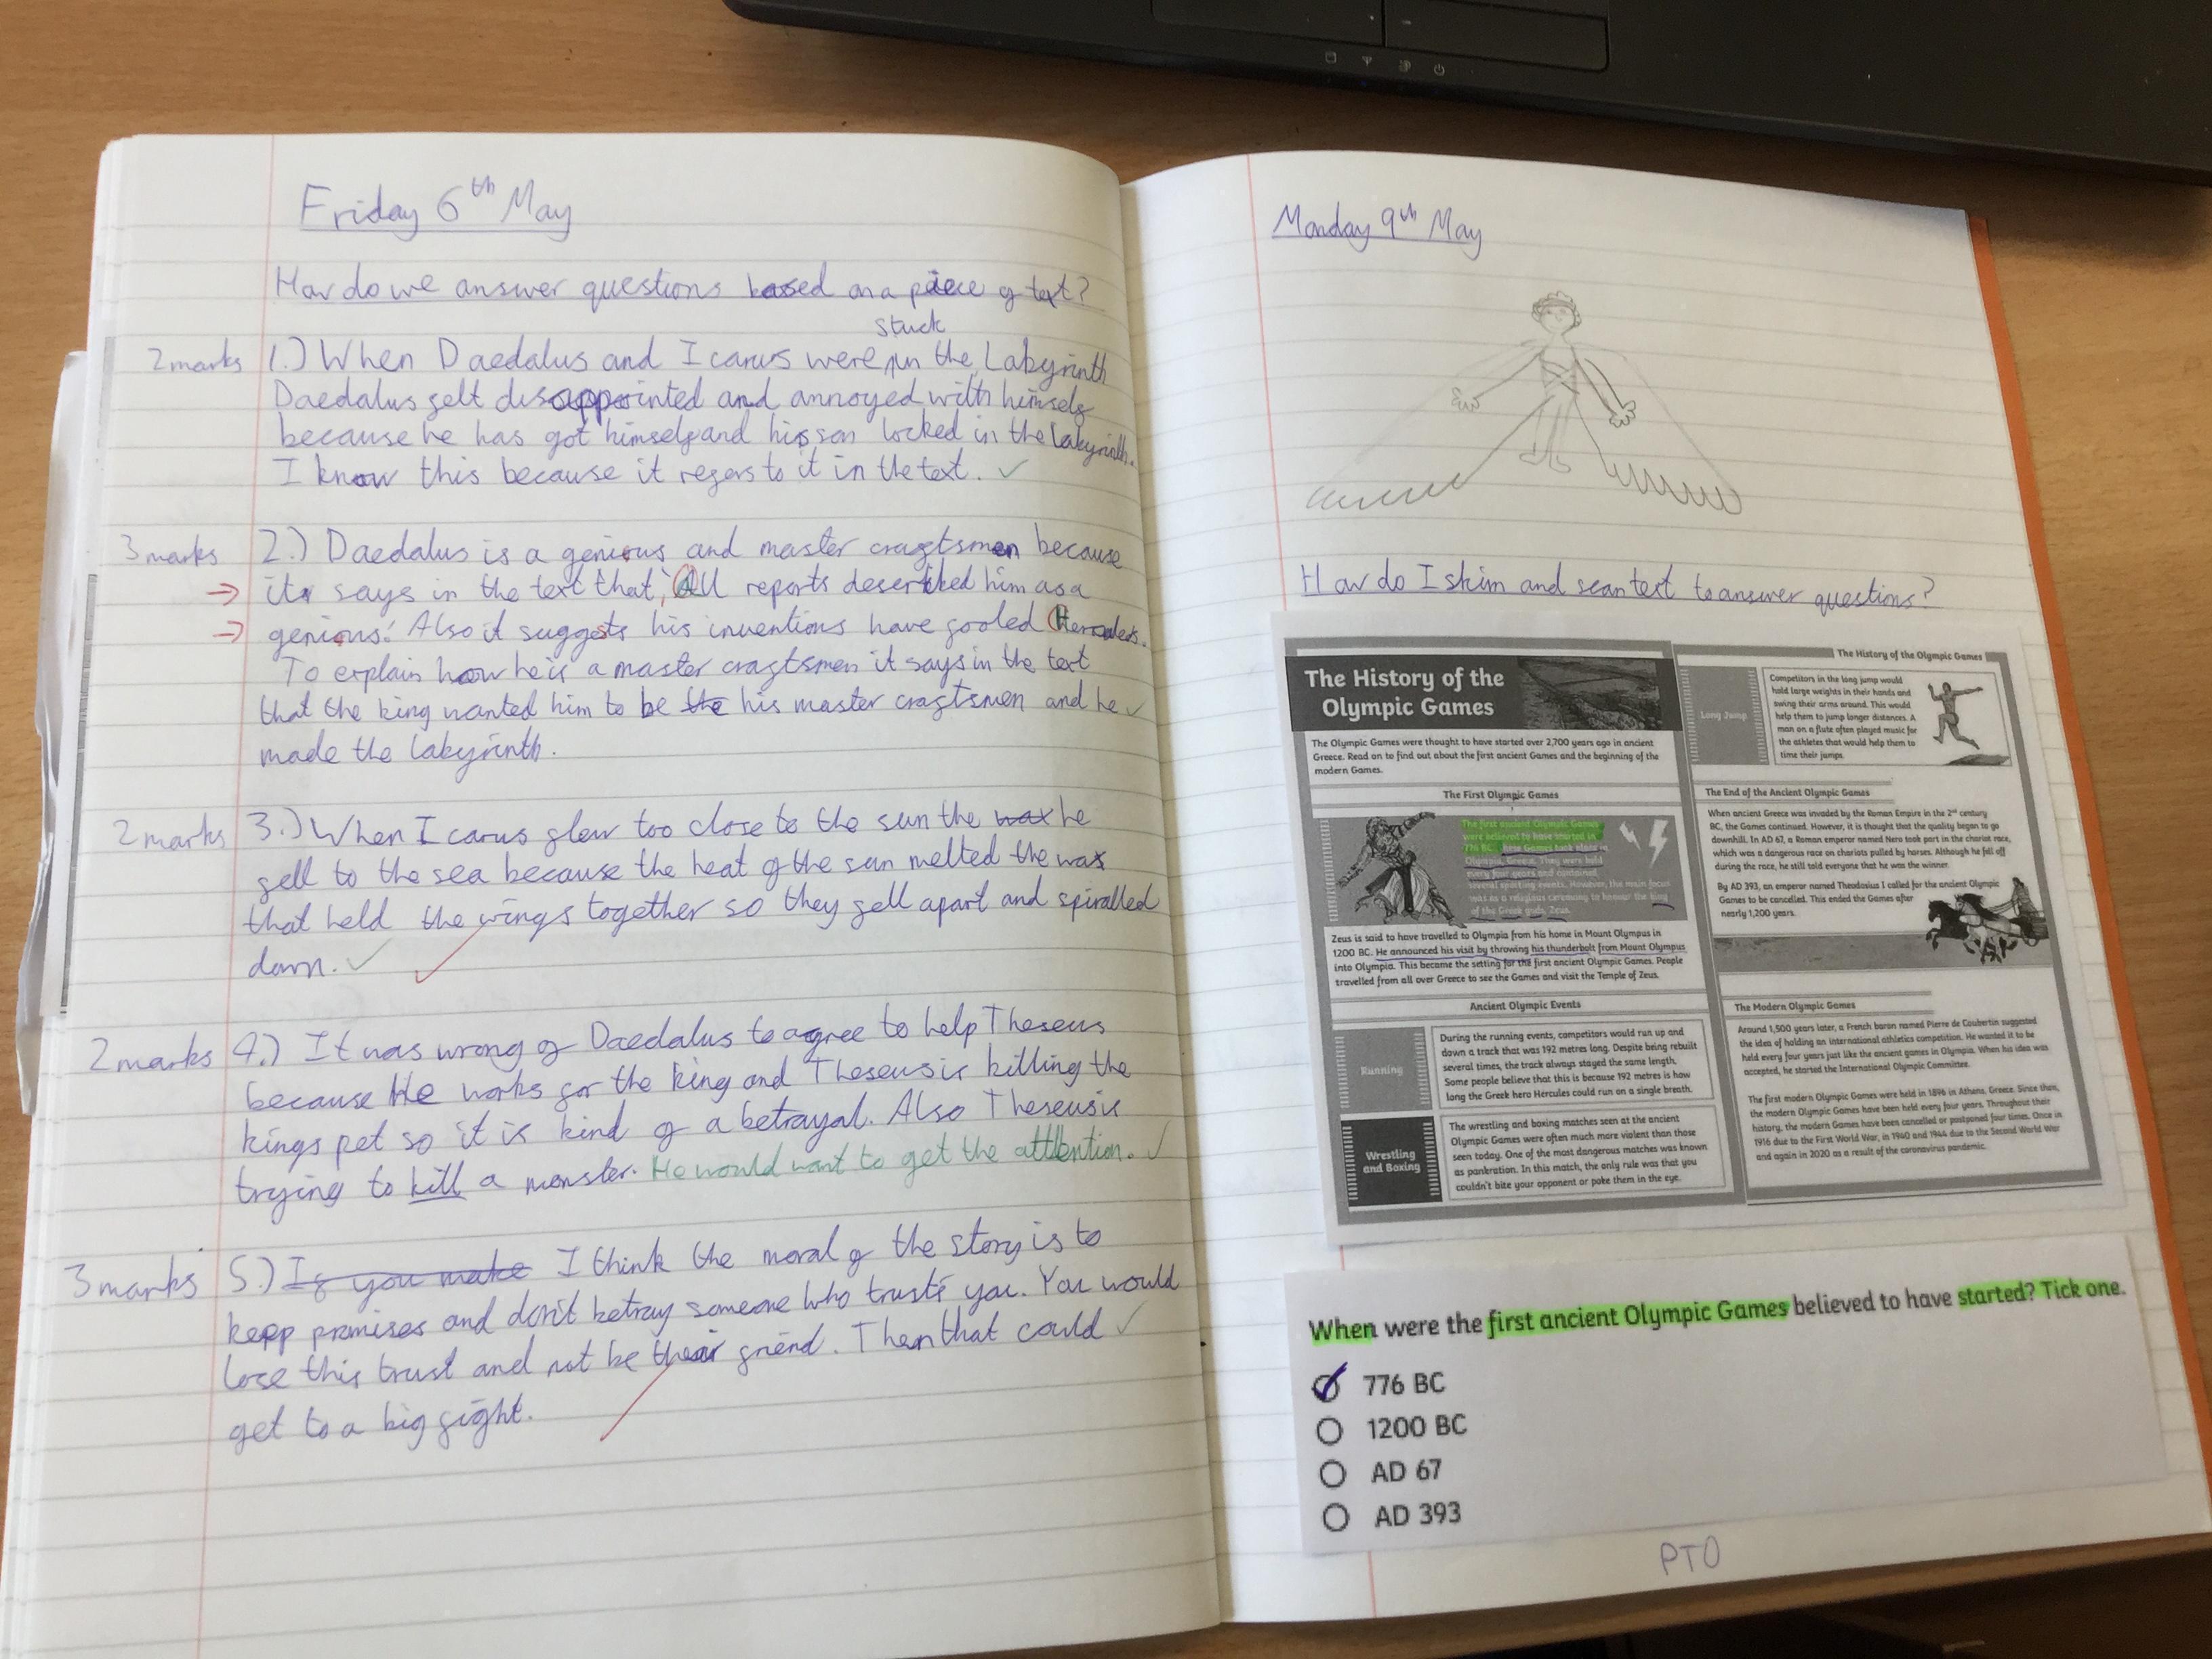 Friday 6th May
How do we answer questions based on a piece of text?
stuck
2 marks 1.) When Daedalus and Icarus were in the Labyrinth
Daedalus felt disappointed and annoyed with himself
because he has got himself and his son locked in the labyrinth.
I know this because it refers to it in the text.
3 marks 2.) Daedalus is a genious and master craftsmen because
it says in the text that, 'All reports described him as a
genious.' Also it suggests his inventions have fooled
To explain how he is a master craftsmen it says in the text
that the king wanted him to be the his master craftsmen and he
made the labyrinth.
2 marks 3.) When Icarus flew too close to the sun the wax he
fell to the sea because the heat of the sun melted the wax
that held the wings together so they fell apart and spiralled
down.
2 marks 4.) It was wrong of Daedalus to agree to help Theseus
because He works for the king and Theseus is killing the
kings pet so it is kind of a betrayal. Also Theseus is
trying to kill a monster. He would want to get the attention.
3 marks 5.) If you make I think the moral of the story is to
keep promises and don't betray someone who trusts you. You would
lose this trust and not be their friend. Then that could
get to a big fight.
Monday 9th May
How do I skim and scan text to answer questions?
The History of the
Olympic Games
The Olympic Games were thought to have started over 2,700 years ago in ancient
Greece. Read on to find out about the first ancient Games and the beginning of the
modern Games.
The First Olympic Games
The first ancient Olympic Games
were believed to have started in
776 BC. These Games took place in
Olympia, Greece. They were held
every four years and contained
several sporting events. However, the main focus
was as a religious ceremony to honour the king
of the Greek gods, Zeus.
Zeus is said to have travelled to Olympia from his home in Mount Olympus in
1200 BC. He announced his visit by throwing his thunderbolt from Mount Olympus
into Olympia. This became the setting for the first ancient Olympic Games. People
travelled from all over Greece to see the Games and visit the Temple of Zeus.
Ancient Olympic Events
Running
During the running events, competitors would run up and
down a track that was 192 metres long. Despite being rebuilt
several times, the track always stayed the same length.
Some people believe that this is because 192 metres is how
long the Greek hero Hercules could run on a single breath.
Wrestling
and Boxing
The wrestling and boxing matches seen at the ancient
Olympic Games were often much more violent than those
seen today. One of the most dangerous matches was known
as pankration. In this match, the only rule was that you
couldn't bite your opponent or poke them in the eye.
The History of the Olympic Games
Long Jump
Competitors in the long jump would
hold large weights in their hands and
swing their arms around. This would
help them to jump longer distances. A
man on a flute often played music for
the athletes that would help them to
time their jumps.
The End of the Ancient Olympic Games
When ancient Greece was invaded by the Roman Empire in the 2nd century
BC, the Games continued. However, it is thought that the quality began to go
downhill. In AD 67, a Roman emperor named Nero took part in the chariot race,
which was a dangerous race on chariots pulled by horses. Although he fell off
during the race, he still told everyone that he was the winner.
By AD 393, an emperor named Theodosius I called for the ancient Olympic
Games to be cancelled. This ended the Games after
nearly 1,200 years.
The Modern Olympic Games
Around 1,500 years later, a French baron named Pierre de Coubertin suggested
the idea of holding an international athletics competition. He wanted it to be
held every four years just like the ancient games in Olympia. When his idea was
accepted, he started the International Olympic Committee.
The first modern Olympic Games were held in 1896 in Athens, Greece. Since then,
the modern Olympic Games have been held every four years. Throughout their
history, the modern Games have been cancelled or postponed four times. Once in
1916 due to the First World War, in 1940 and 1944 due to the Second World War
and again in 2020 as a result of the coronavirus pandemic.
When were the first ancient Olympic Games believed to have started? Tick one.
776 BC
1200 BC
AD 67
AD 393
PTO